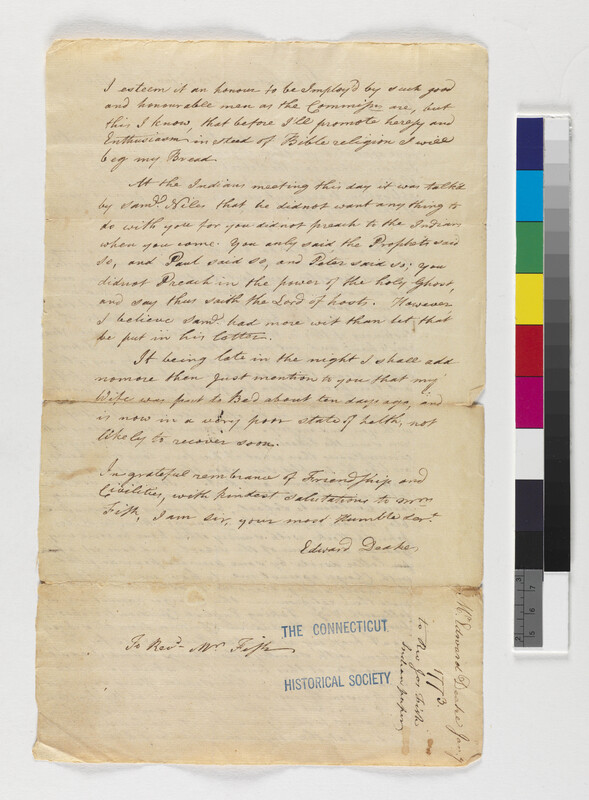 I esteem it an honour to be Imploy'd by such good
and honourable men as the Commissrs are, but
this I know, that before I'll promote heresy and
Enthusiasm in stead of Bible religion I will
beg my Bread.
At the Indians meeting this day it was talk'd
by Saml. Niles that he didnot want anything to
do with you for you did not preach to the Indians
when you come. You only said the Prophets said
so, and Paul said so, and Peter said so; you
didnot Preach in the power of the holy Ghost,
and say thus saith the Lord of hosts. However
I believe Saml. had more wit than let that
be put in his letter.
It being late in the night I shall add
nomore then Just mention to you that my
Wife was put to Bed about ten days ago, and
is now in a very poor state of helth, not
likely to recover soon.
In grateful rembrance of Friendship and
Civilities, with kindest salutations to Mrs
Fish, I am Sir, your most Humble Sert.
Edward Deake
To Revd. Mr Fish
THE CONNECTICUT
HISTORICAL SOCIETY
Mr Edward Deake Jany
1773.
to Rev Jos Fish
Indian papers